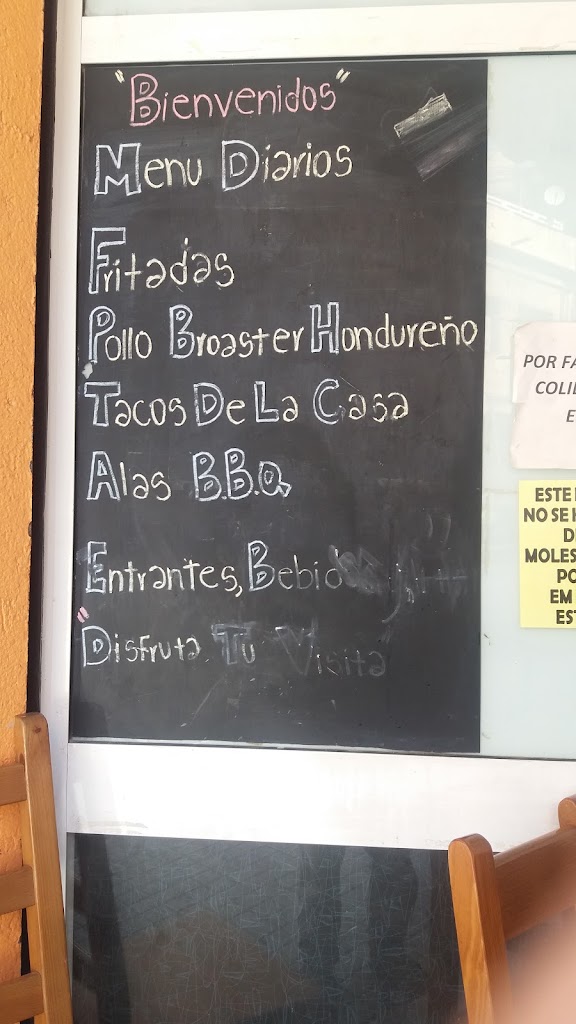 "Bienvenidos"
Menu Diarios
Fritadas
Pollo Broaster Hondureño
Tacos De La Casa
Alas B.B.Q,
Entrantes, Bebidas
"Disfruta Tu Visita"
POR FA
COLI
E
ESTE
NO SE
D
MOLES
PO
EM
EST